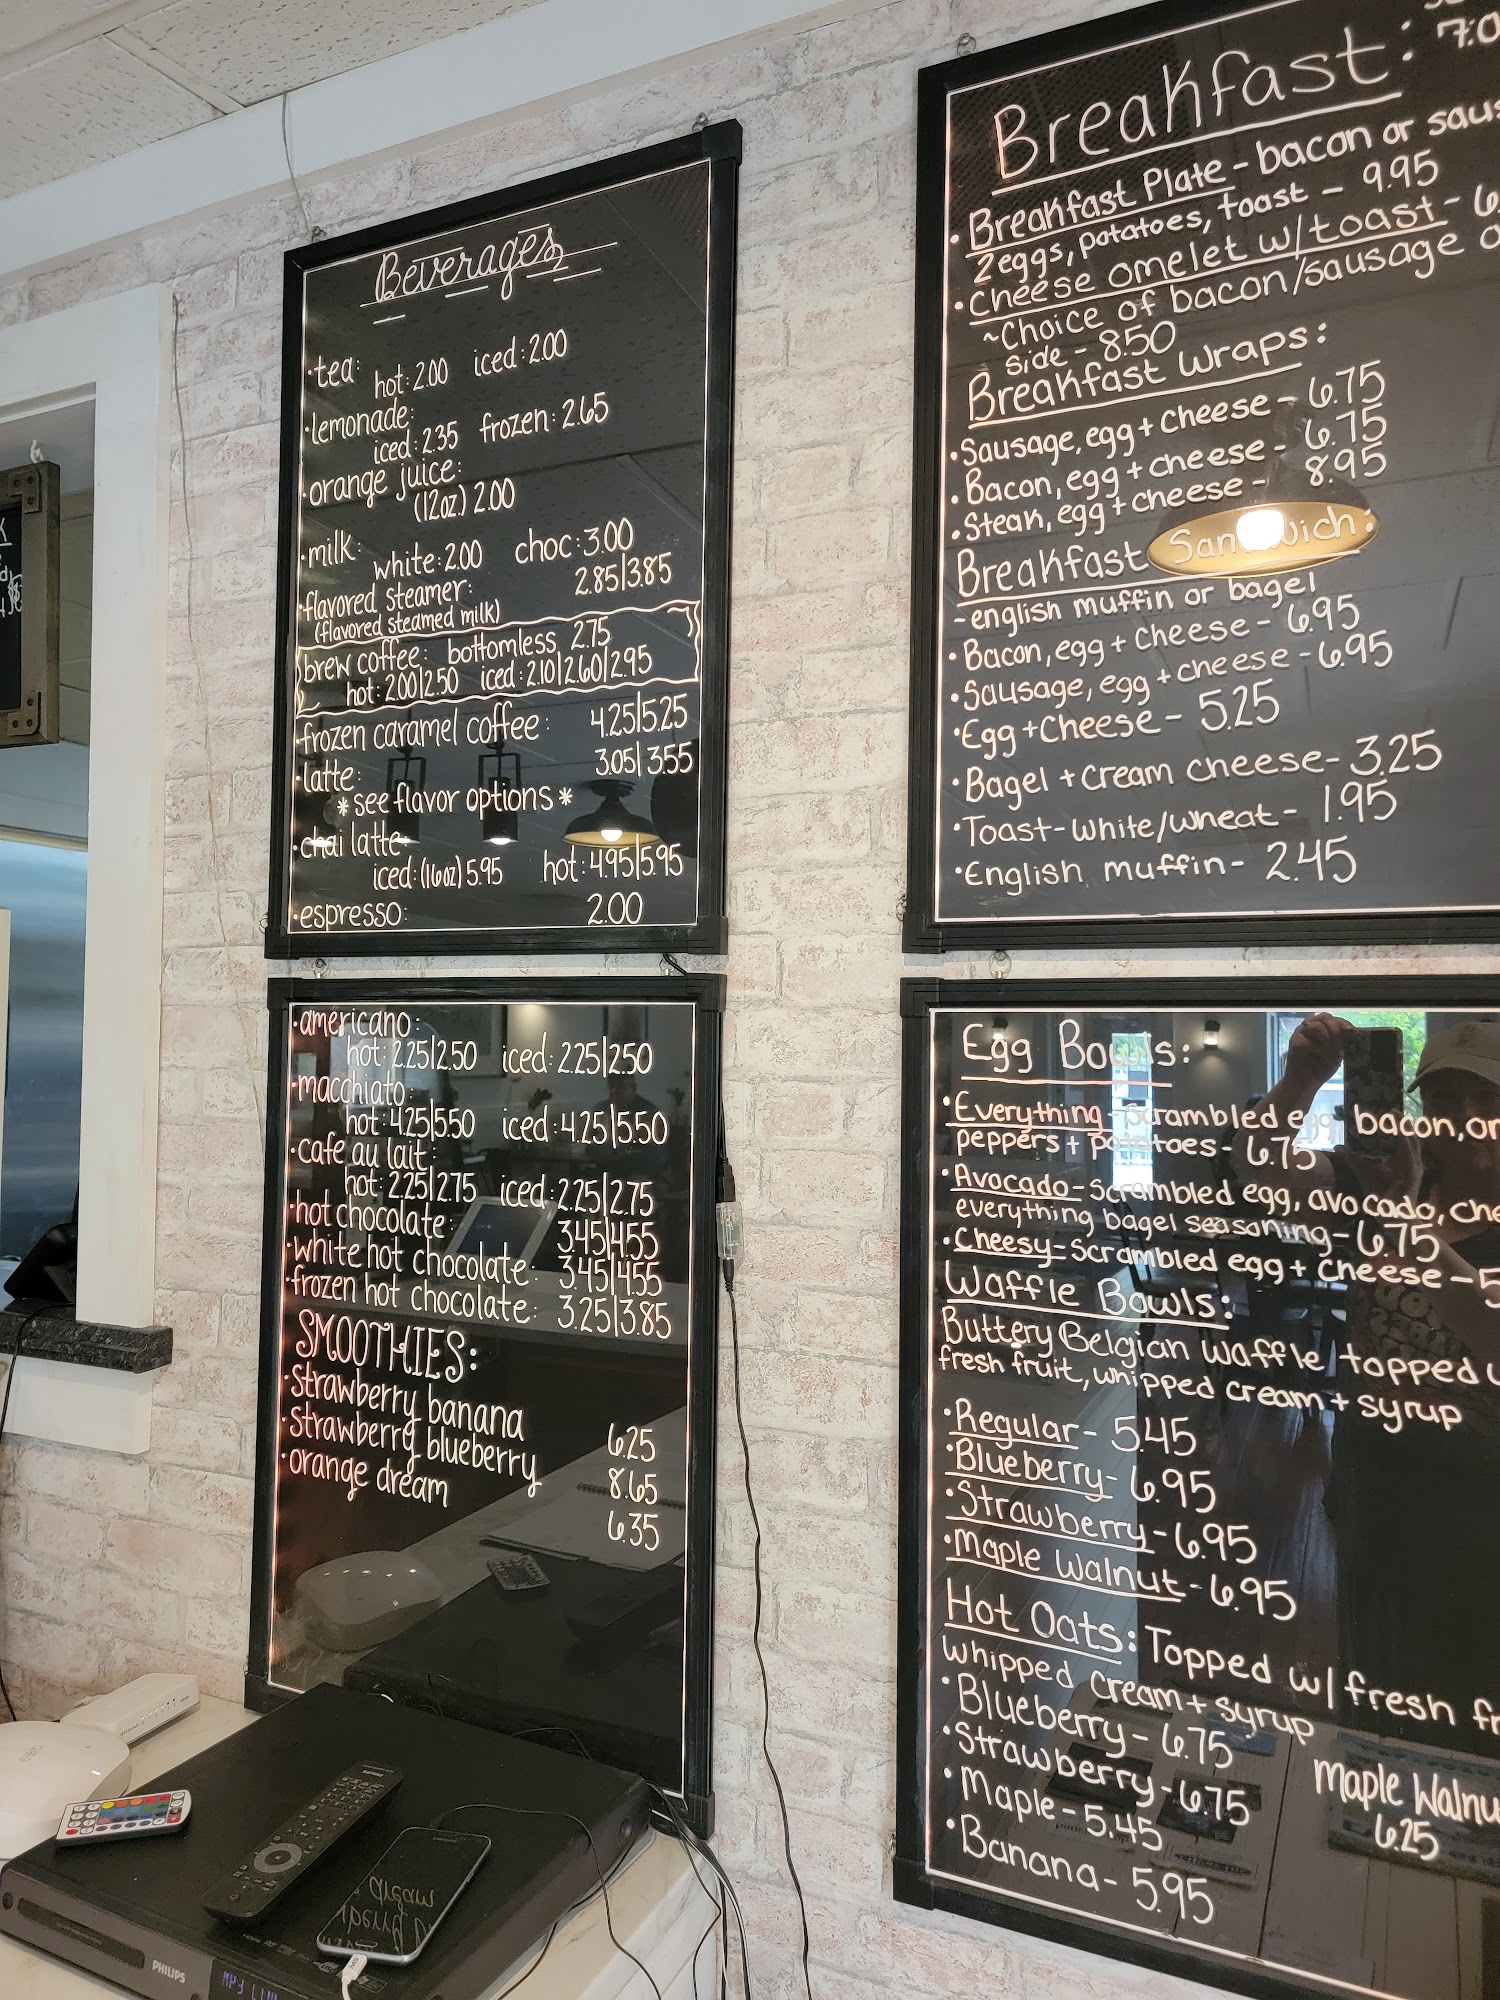 Beverages
·tea:
hot: 2.00 iced: 2.00
·lemonade:
iced: 2.35 frozen: 2.65
·orange juice:
(12oz.) 2.00
·milk:
white: 2.00 choc: 3.00
·flavored steamer: 2.85|3.85
(flavored steamed milk)
brew coffee: bottomless 2.75
hot: 2.00|2.50 iced: 2.10|2.60|2.95
·frozen caramel coffee: 4.25|5.25
·latte: 3.05|3.55
*see flavor options*
·chai latte
iced: (16oz) 5.95 hot: 4.95|5.95
·espresso: 2.00
·americano:
hot: 2.25|2.50 iced: 2.25|2.50
·macchiato:
hot: 4.25|5.50 iced: 4.25|5.50
·cafe au lait:
hot: 2.25|2.75 iced: 2.25|2.75
·hot chocolate: 3.45|4.55
·white hot chocolate: 3.45|4.55
·frozen hot chocolate: 3.25|3.85
SMOOTHIES:
·strawberry banana 6.25
·strawberry blueberry 8.65
·orange dream 6.35
Breakfast:
·Breakfast Plate - bacon or
2 eggs, potatoes, toast - 9.95
·Cheese omelet w/toast -
~Choice of bacon/sausage
side - 8.50
Breakfast Wraps:
·Sausage, egg + cheese - 6.75
·Bacon, egg + cheese - 6.75
·Steak, egg + cheese - 8.95
Breakfast Sandwich:
-english muffin or bagel
·Bacon, egg + cheese - 6.95
·Sausage, egg + cheese - 6.95
·Egg + Cheese - 5.25
·Bagel + cream cheese - 3.25
·Toast - white/wheat - 1.95
·English muffin - 2.45
Egg Bowls:
·Everything - scrambled egg, bacon,
peppers + potatoes - 6.75
·Avocado - Scrambled egg, avocado,
everything bagel seasoning - 6.75
·Cheesy - Scrambled egg + cheese -
Waffle Bowls:
Buttery Belgian waffle topped
fresh fruit, whipped cream + syrup
·Regular - 5.45
·Blueberry - 6.95
·Strawberry - 6.95
·Maple Walnut - 6.95
Hot Oats: Topped w/ fresh
whipped cream + syrup
·Blueberry - 6.75
·Strawberry - 6.75
·Maple - 5.45
·Banana - 5.95
Maple
6.25
PHILIPS